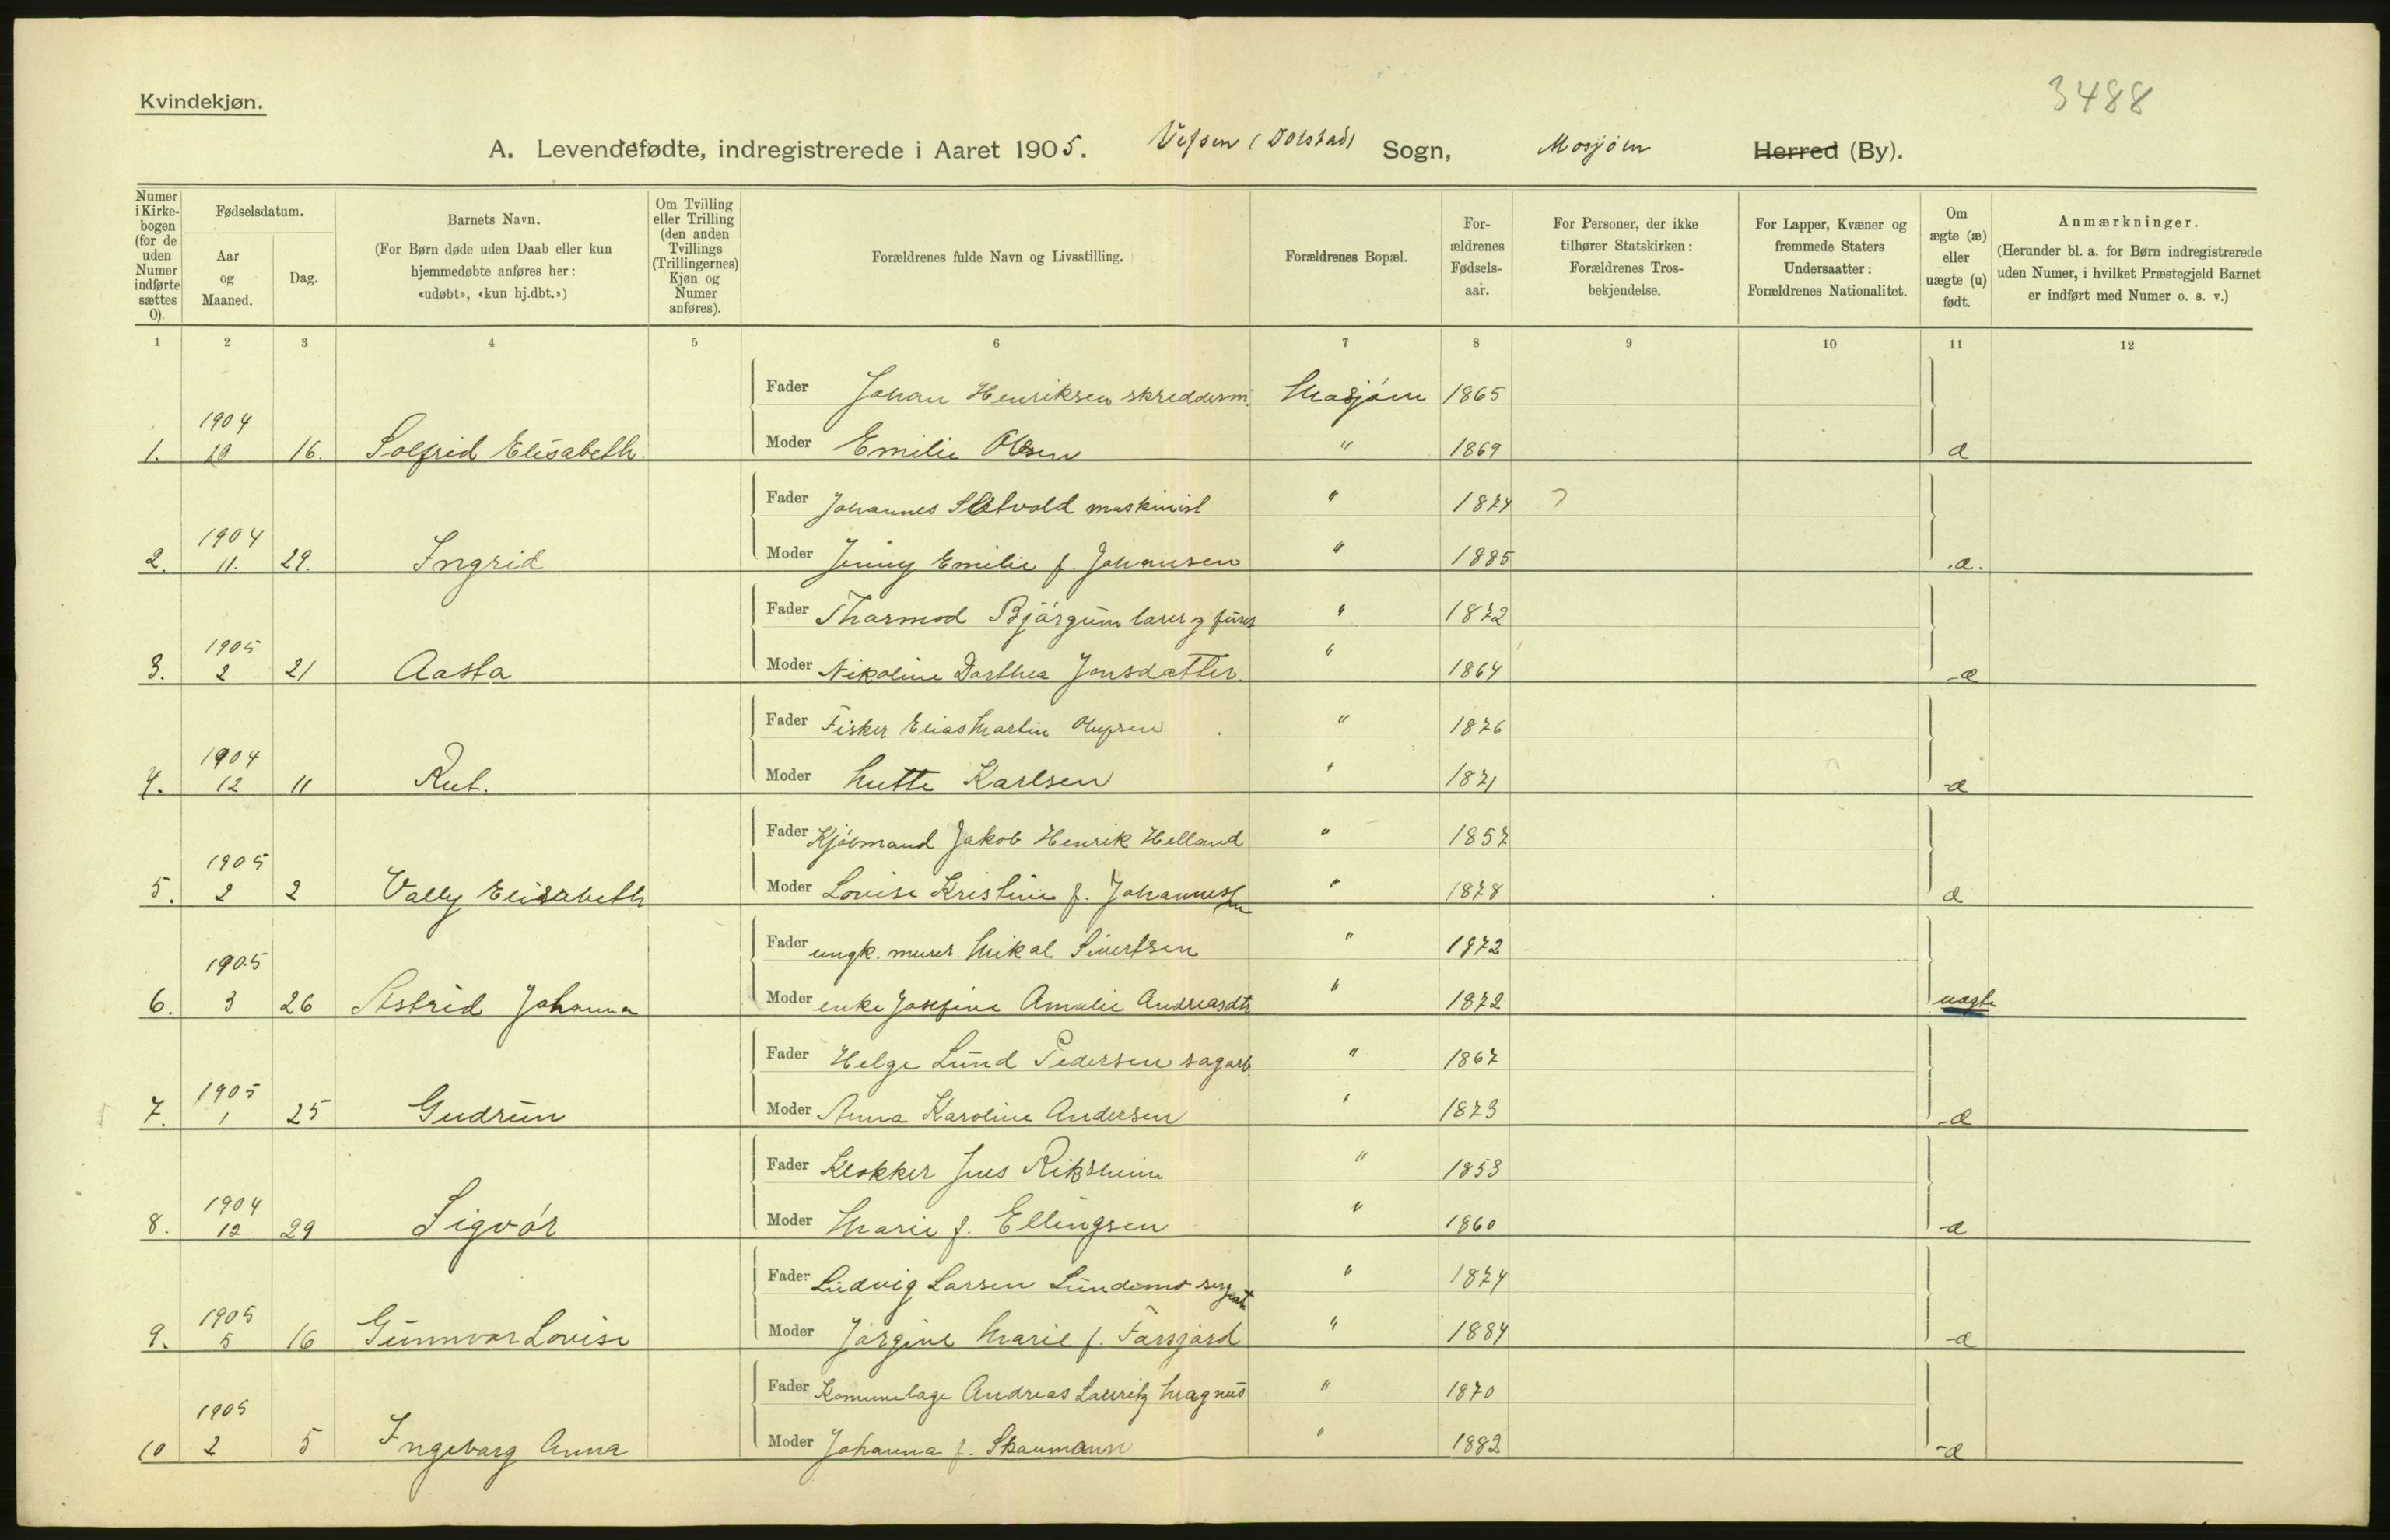 Kvindekjøn.
3488
A. Levendefødte, indregistrerede i Aaret 1905. Vefsen (Dolstad) Sogn, Mosjøen Herred (By).
Numer i Kirkebogen (for de uden Numer indførte sættes 0).
Fødselsdatum.
Aar og Maaned.
Dag.
Barnets Navn.
(For Børn døde uden Daab eller kun hjemmedøbte anføres her: «udøbt», «kun hj.dbt.»)
Om Tvilling eller Trilling (den anden Tvillings (Trillingernes) Kjøn og Numer anføres).
Forældrenes fulde Navn og Livsstilling.
Forældrenes Bopæl.
Forældrenes Fødselsaar.
For Personer, der ikke tilhører Statskirken: Forældrenes Trosbekjendelse.
For Lapper, Kvæner og fremmede Staters Undersaatter: Forældrenes Nationalitet.
Om ægte (æ) eller uægte (u) født.
Anmærkninger.
(Herunder bl. a. for Børn indregistrerede uden Numer, i hvilket Præstegjeld Barnet er indført med Numer o. s. v.)
1 2 3 4 5 6 7 8 9 10 11 12
Fader Johan Henriksen skredderm. Mosjøen 1865
1. 1904 10 16. Solfrid Elisabeth. Moder Emilie Olsen " 1869 æ
Fader Johannes maskinist " 1874
2. 1904 11. 29. Ingrid Moder Jenny Emilie f. Johansen " 1885 æ.
Fader Thormod Bjørgum " 1872
3. 1905 2 21 Aasta Moder Nikoline Dorthea Jonsdatter. " 1864 æ
Fader Fisker Elias Martin Olufsen " 1876
4. 1904 12 11 Rut. Moder Mette Karlsen " 1871 æ
Fader Kjøbmand Jakob Henrik Helland " 1857
5. 1905 2 2 Vally Elisabeth Moder Lovise Kristine f. Johannessen " 1878 æ
Fader ungk. murer. Mikal Sivertsen " 1872
6. 1905 3 26 Astrid Johanna Moder enke Josefine Amalie Andreasdtr " 1872 uægte
Fader Helge Lund Pedersen sagarb. " 1867
7. 1905 1 25 Gudrun Moder Anna Karoline Andersen " 1873 æ
Fader Klokker Jens Riksheim " 1853
8. 1904 12 29 Sigvór Moder Marie f. Ellingsen " 1860 æ
Fader Ludvig Larsen Lundemo sergeant " 1874
9. 1905 5 16 Gunnvor Lovise Moder Jørgine Marie f. Forsjord " 1884 æ
Fader Komunelæge Andreas Lauritz Magnus " 1870
10 1905 2 5 Ingeborg Anna Moder Johanna f. Skaumann " 1882 æ